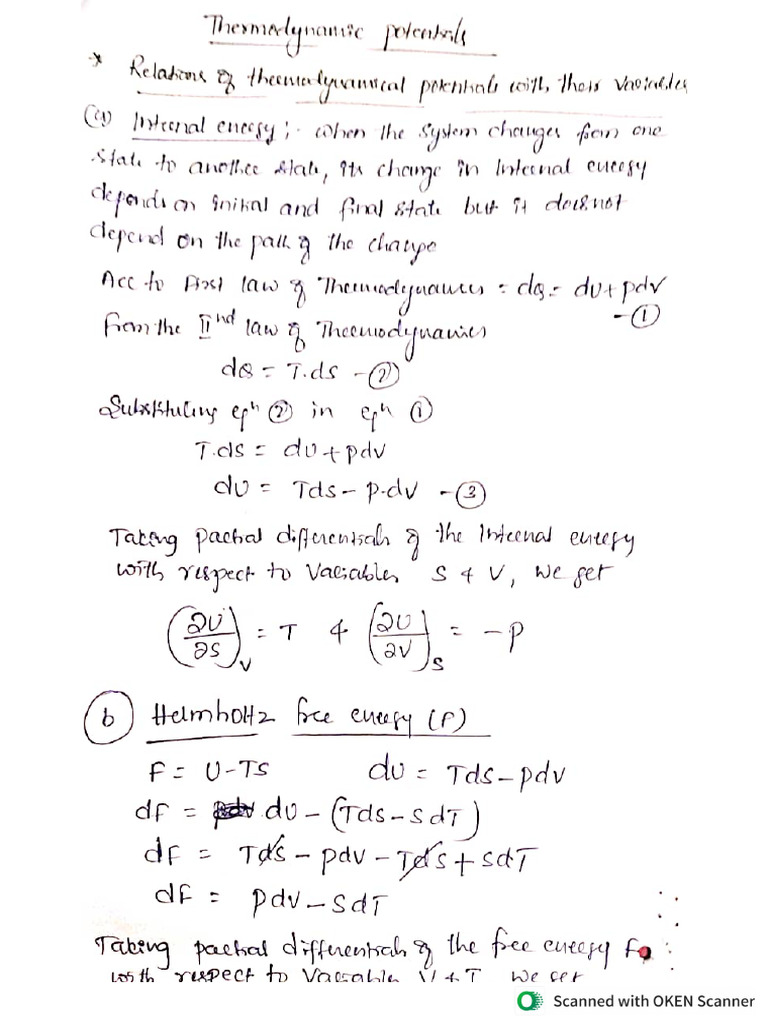 Thermodynamic potentials
* Relations of thermodynamical potentials with their variables
(a) Internal energy :- when the system changes from one
state to another state, its change in internal energy
depends on initial and final state but it does not
depend on the path of the change
Acc to First law of Thermodynamics = dQ = dU + pdv
- ①
from the IInd law of Thermodynamics
dQ = T.ds - ②
Substituting eqn ② in eqn ①
T.ds = dU + pdv
dU = Tds - p.dv - ③
Taking partial differentials of the internal energy
with respect to variables S & V, we get
(∂U/∂S)V = T & (∂U/∂V)S = -P
ⓑ Helmholtz free energy (F)
F = U-TS dU = Tds - pdv
dF = dU - (Tds - SdT)
dF = Tds - pdv - Tds + SdT
dF = pdv - SdT
Taking partial differentials of the free energy F
with respect to variables V & T we get
Scanned with OKEN Scanner